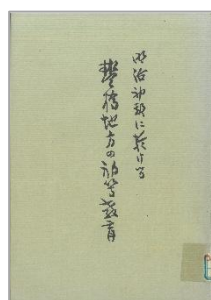 明治初頭に於ける
豊橋地方の初等教育